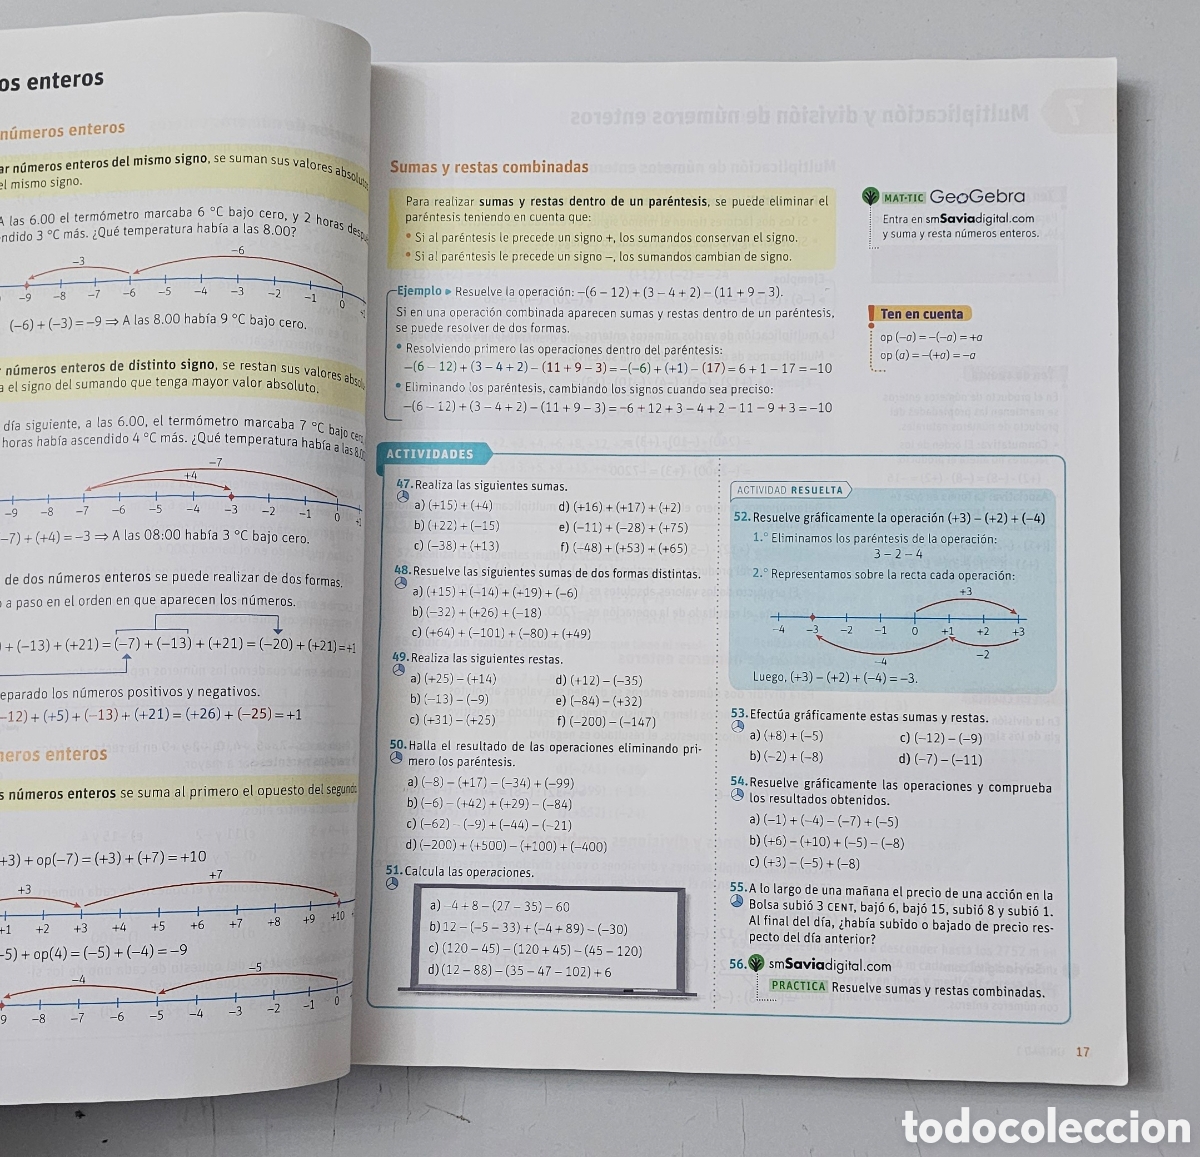 os enteros
números enteros
ar números enteros del mismo signo, se suman sus valores absolutos
el mismo signo.
A las 6.00 el termómetro marcaba 6 °C bajo cero, y 2 horas
endido 3 °C más. ¿Qué temperatura había a las 8.00?
−6
−3
−9 −8 −7 −6 −5 −4 −3 −2 −1 0 +1
(−6) + (−3) = −9 ⇒ A las 8.00 había 9 °C bajo cero.
números enteros de distinto signo, se restan sus valores
a el signo del sumando que tenga mayor valor absoluto.
día siguiente, a las 6.00, el termómetro marcaba 7 °C bajo
horas había ascendido 4 °C más. ¿Qué temperatura había a las 8.0
−7
+4
−9 −8 −7 −6 −5 −4 −3 −2 −1 0 +1
−7) + (+4) = −3 ⇒ A las 08:00 había 3 °C bajo cero.
de dos números enteros se puede realizar de dos formas.
o a paso en el orden en que aparecen los números.
) + (−13) + (+21) = (−7) + (−13) + (+21) = (−20) + (+21) = +1
eparado los números positivos y negativos.
−12) + (+5) + (−13) + (+21) = (+26) + (−25) = +1
neros enteros
s números enteros se suma al primero el opuesto del segundo
+3) + op(−7) = (+3) + (+7) = +10
+3
+7
+1 +2 +3 +4 +5 +6 +7 +8 +9 +10
−5) + op(4) = (−5) + (−4) = −9
−5
−4
9 −8 −7 −6 −5 −4 −3 −2 −1 0
Sumas y restas combinadas
Para realizar sumas y restas dentro de un paréntesis, se puede eliminar el
paréntesis teniendo en cuenta que:
• Si al paréntesis le precede un signo +, los sumandos conservan el signo.
• Si al paréntesis le precede un signo −, los sumandos cambian de signo.
Ejemplo Resuelve la operación: −(6 − 12) + (3 − 4 + 2) − (11 + 9 − 3).
Si en una operación combinada aparecen sumas y restas dentro de un paréntesis,
se puede resolver de dos formas.
• Resolviendo primero las operaciones dentro del paréntesis:
−(6 − 12) + (3 − 4 + 2) − (11 + 9 − 3) = −(−6) + (+1) − (17) = 6 + 1 − 17 = −10
• Eliminando los paréntesis, cambiando los signos cuando sea preciso:
−(6 − 12) + (3 − 4 + 2) − (11 + 9 − 3) = −6 + 12 + 3 − 4 + 2 − 11 − 9 + 3 = −10
MAT-TIC GeoGebra
Entra en smSaviadigital.com
y suma y resta números enteros.
Ten en cuenta
op (−a) = −(−a) = +a
op (a) = −(+a) = −a
ACTIVIDADES
47. Realiza las siguientes sumas.
a) (+15) + (+4) d) (+16) + (+17) + (+2)
b) (+22) + (−15) e) (−11) + (−28) + (+75)
c) (−38) + (+13) f) (−48) + (+53) + (+65)
48. Resuelve las siguientes sumas de dos formas distintas.
a) (+15) + (−14) + (+19) + (−6)
b) (−32) + (+26) + (−18)
c) (+64) + (−101) + (−80) + (+49)
49. Realiza las siguientes restas.
a) (+25) − (+14) d) (+12) − (−35)
b) (−13) − (−9) e) (−84) − (+32)
c) (+31) − (+25) f) (−200) − (−147)
50. Halla el resultado de las operaciones eliminando pri-
mero los paréntesis.
a) (−8) − (+17) − (−34) + (−99)
b) (−6) − (+42) + (+29) − (−84)
c) (−62) − (−9) + (−44) − (−21)
d) (−200) + (+500) − (+100) + (−400)
51. Calcula las operaciones.
a) −4 + 8 − (27 − 35) − 60
b) 12 − (−5 − 33) + (−4 + 89) − (−30)
c) (120 − 45) − (120 + 45) − (45 − 120)
d) (12 − 88) − (35 − 47 − 102) + 6
ACTIVIDAD RESUELTA
52. Resuelve gráficamente la operación (+3) − (+2) + (−4)
1.° Eliminamos los paréntesis de la operación:
3 − 2 − 4
2.° Representamos sobre la recta cada operación:
+3
−4 −3 −2 −1 0 +1 +2 +3
−4
−2
Luego, (+3) − (+2) + (−4) = −3.
53. Efectúa gráficamente estas sumas y restas.
a) (+8) + (−5) c) (−12) − (−9)
b) (−2) + (−8) d) (−7) − (−11)
54. Resuelve gráficamente las operaciones y comprueba
los resultados obtenidos.
a) (−1) + (−4) − (−7) + (−5)
b) (+6) − (+10) + (−5) − (−8)
c) (+3) − (−5) + (−8)
55. A lo largo de una mañana el precio de una acción en la
Bolsa subió 3 CENT, bajó 6, bajó 15, subió 8 y subió 1.
Al final del día, ¿había subido o bajado de precio res-
pecto del día anterior?
56. smSaviadigital.com
PRACTICA Resuelve sumas y restas combinadas.
17
todocoleccion